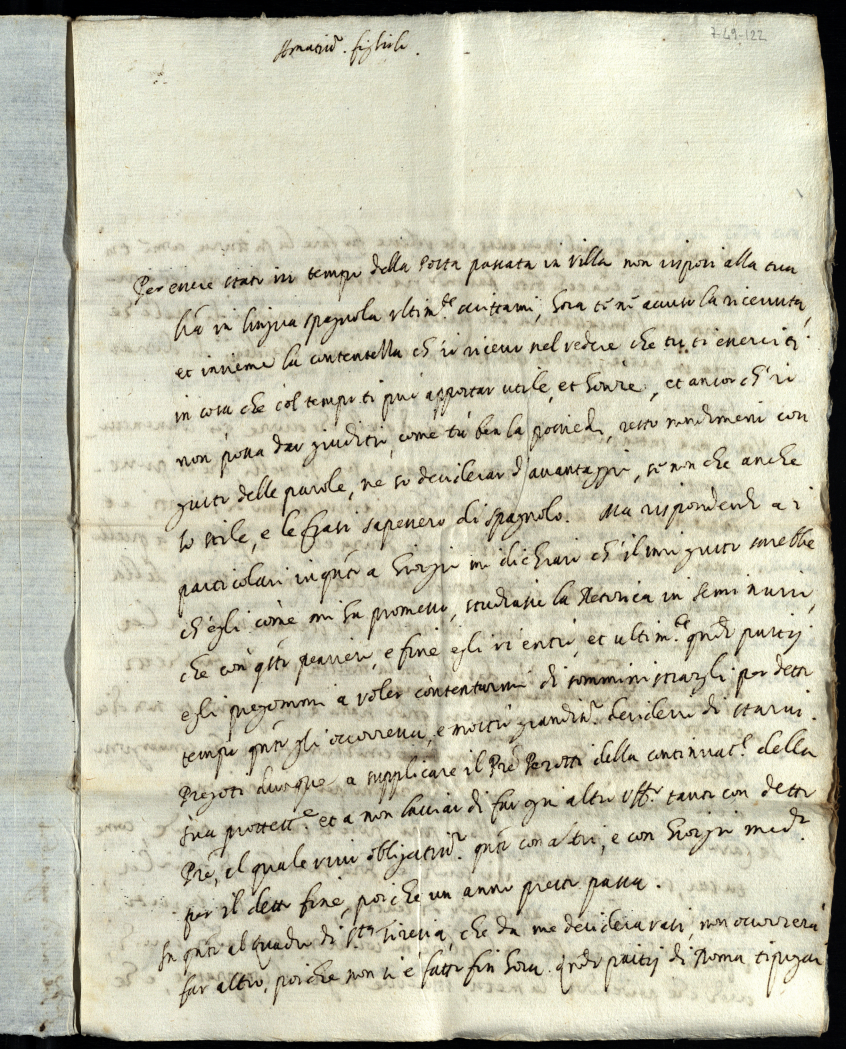 7-49-122
Amatiss.º figliolo.
Per essere stato in tempo della posta passata in villa non risposi alla tua
l'ra in lingua spagnola ultim.te hora te ne accuso la ricevuta,
et insieme la contentezza ch'io ricevo nel vedere che tu ti eserciti
in cosa che col tempo ti può apportar utile, et honore, et ancor ch'io
non possa dar giuditio, come tu ben la possiedi, resto nondimeno con
gusto delle parole, ne so desiderar d'avantaggio, se non che anche
lo stile, e le frasi sapessero di spagnolo. Ma rispondendo a i
particolari in q.to a Giorgio mi dichiaro ch'il mio gusto sarebbe
ch'egli come mi ha promesso, studiasse la Retorica in seminario,
che con q.sto pensiero, e fine egli vi entrò, et ultim.te q.ndo partij
egli pregommi a voler contentarmi di somministrargli per detto
tempo q.to gli occorreva, e mostrò grandiss.º desiderio di starvi.
Pregoti dunque a supplicare il P're Perotti della continuat.e della
sua protett.e et a non lasciar di far ogni altro uff.º tanto con detto
P're, il quale vivo obligatiss.º q.to con altri, e con Giorgio med.º
per il detto fine, poiche un anno presto passa.
In q.to al quadro di S.ta Teresia, che da me desideravasi, non occorrerà
far altro, poiche non si è fatto fin hora. q.ndo partij di Roma ti pregai